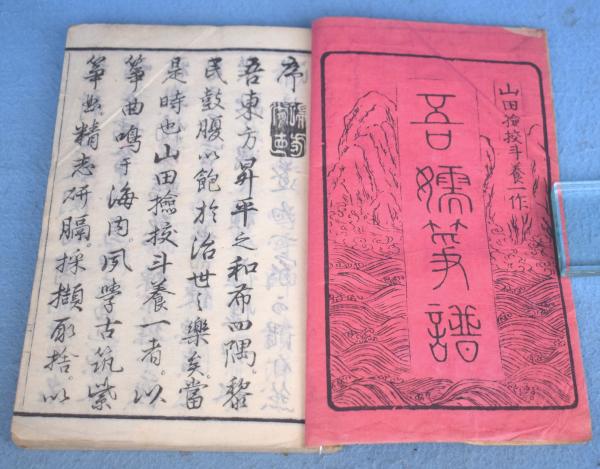 山田撿挍斗養一作
吾嬬箏譜
序
吾東方昇平之和布四隅。黎
民鼓腹以飽於治世之樂矣。當
是時也山田撿挍斗養一者。以
箏曲鳴于海内。夙學古筑紫
箏曲精志研膈。採擷取捨。以